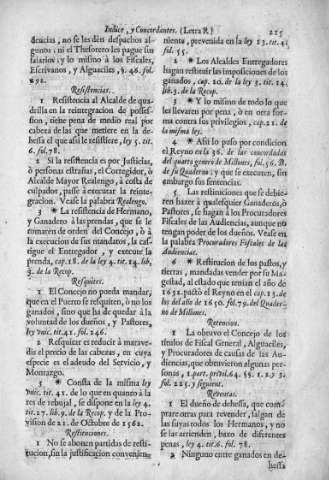 Indice, y Concordantes. (Letra R) 225
dencias, no se les dèn despachos algunos
gunos : ni el Thesorero les pague sus
salarios : y lo mismo à los Fiscales,
Escrivanos, y Alguaciles, §. 46. fol.
Resistencias.
1 Resistencia al Alcalde de quadrilla
drilla en la reintegracion de possession,
sion, tiene pena de medio real por
cabeza de las que metiere en la dehesa
hesa el que assi le resistiere, ley 5. tit.
6. fol. 78.
2 Si la resistencia es por Justicias,
ò personas estrañas, el Corregidor, ò
Alcalde Mayor Realengo, à costa de
culpados, passe à executar la reintegracion.
gracion. Vease la palabra Realengo.
3 * La resistencia de Hermano,
y Ganadero à las prendas, que se le
tomaren de orden del Concejo, ò à
la execucion de sus mandatos, la castigue
tigue el Entregador, y execute la
prenda, cap. 18. de la ley 4. tit. 14. lib.
3. de la Recop.
Resquites.
1 El Concejo no pueda mandar,
que en el Puerto se resquiten, ò no los
ganados, sino que ha de quedar à la
voluntad de los dueños, y Pastores,
ley vnic. tit. 41. fol. 246.
2 Resquitar es reducir à maravedis
dis el precio de las cabezas, en cuya
especie es el adeudo del Servicio, y
Montazgo.
3 * Consta de la misma ley
vnic. tit. 41. de lo que en quanto à la
res de rebujal, se dispone en la ley 4.
tit. 27. lib. 9. de la Recop. y de la Provision
vision de 21. de Octubre de 1562.
Restituciones.
1 No se abonen partidas de restitucion,
tucion, sin la justificacion conveniente,
niente, prevenida en la ley 13. tit. 4.
fol. 55.
2 * Los Alcaldes Entregadores
hagan restituir las imposiciones de los
ganados, cap. 20. de la ley 3. tit. 14.
lib. 3. de la Recop.
3 * Y lo mismo de todo lo que
les llevaren por pena, ò en otra forma
ma contra sus privilegios, cap. 21. de
la misma ley.
4 * Assi lo puso por condicion
el Reyno en la 36. de las concedidas
del quarto genero de Millones, fol. 56. B.
de su Quaderno : y que se executen, sin
embargo sus sentencias.
5 Las restituciones que se debieren
ren hazer à qualesquier Ganaderos, ò
Pastores, se hagan à los Procuradores
Fiscales de las Audiencias, aunque no
tengan poder de los dueños. Vease en
la palabra Procuradores Fiscales de las
Audiencias.
6 * Restitucion de los pastos, y
tierras, mandadas vender por su Magestad,
gestad, al estado que tenian el año de
el Reyno en el cap. 13. de
los del año de 1650. fol. 79. del Quaderno
no de Millones.
Retencion.
1 La obtuvo el Concejo de los
titulos de Fiscal General, Alguaciles,
y Procuradores de causas de las Audiencias,
diencias, que obtuvieron algunas personas,
sonas, 1. part. privil. 64. §§. 1. 2. y 3.
fol. 225. y siguient.
Reventas.
1 El dueño de dehessa, que compràre
otras para revender, salgan de
las suyas todos los Hermanos, y no
se las arrienden, baxo de diferentes
penas, ley 4. tit. 6. fol. 77.
2 Ninguno entre ganados en dehessa